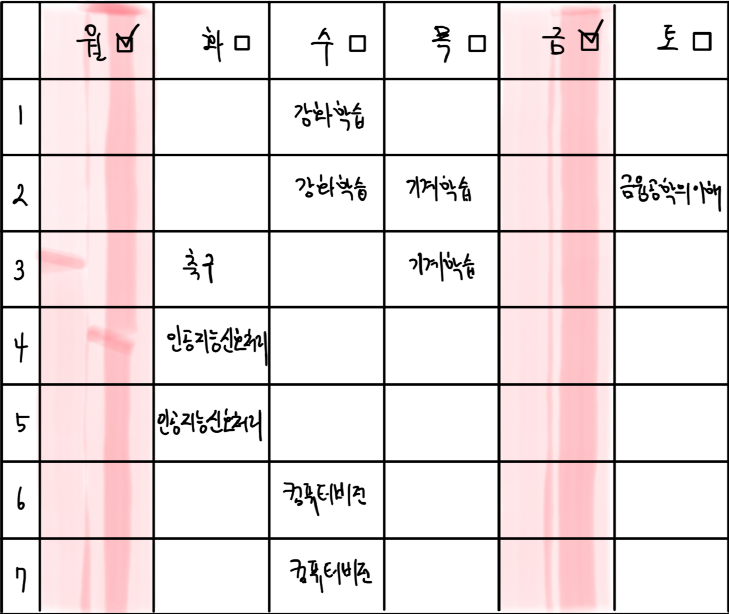 월 ☑ 화 ☐ 수 ☐ 목 ☐ 금 ☑ 토 ☐
1 강화학습
2 강화학습 기계학습 금융공학의이해
3 축구 기계학습
4 인공지능신호처리
5 인공지능신호처리
6 컴퓨터비전
7 컴퓨터비전